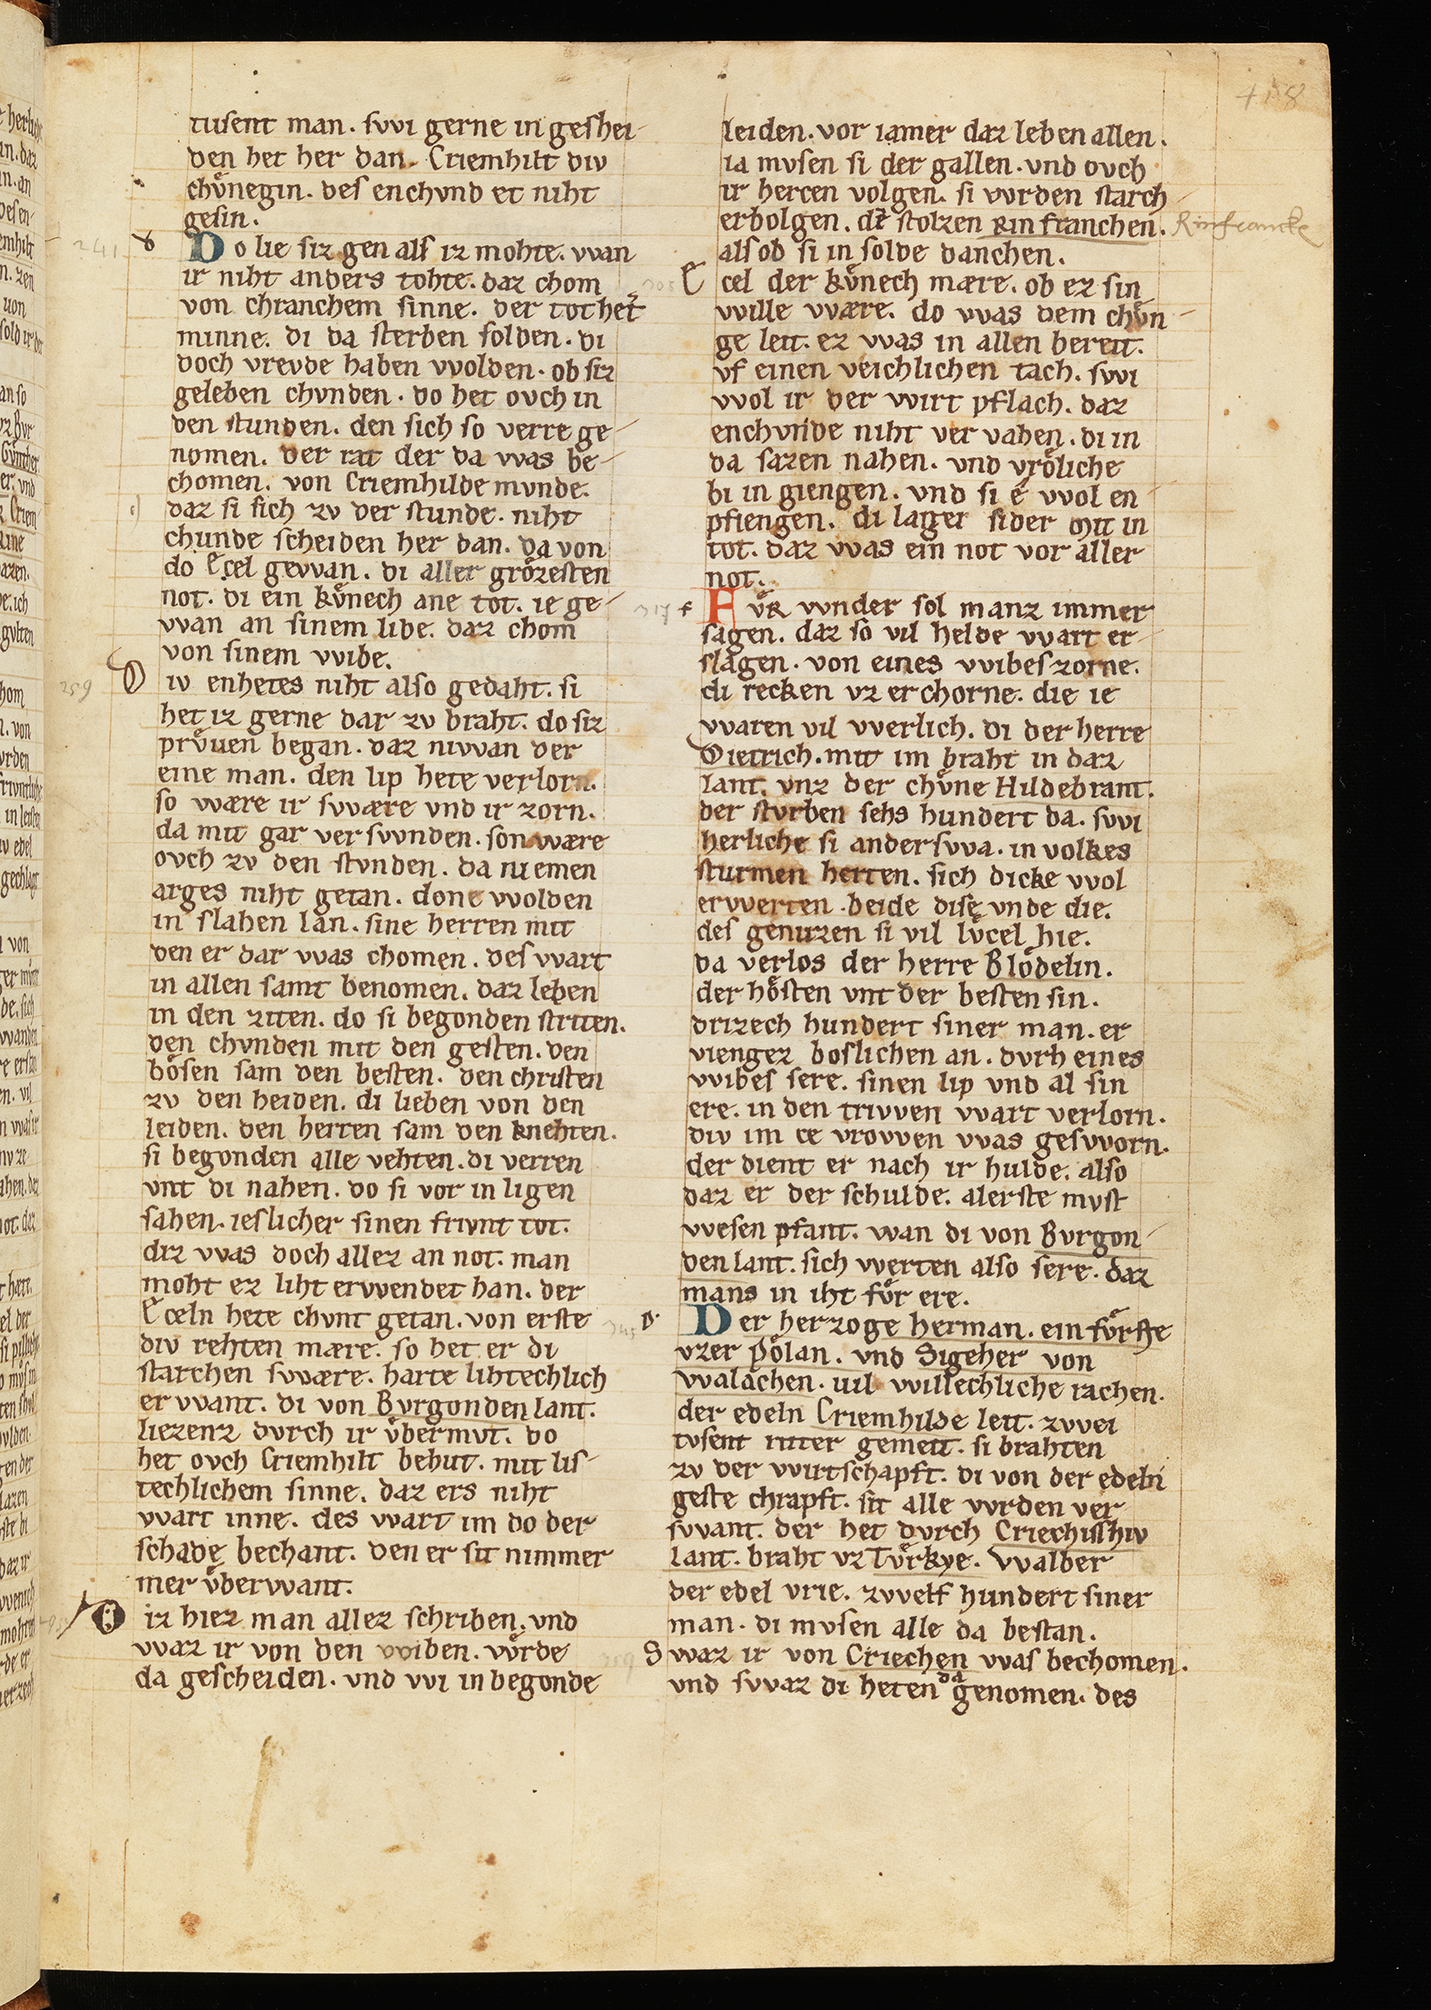 tusent man. swi gerne in geshei-
den het her dan. Criemhilt div
chůnegin. des enchvnd et niht
gesin.
Do lie siz gen als iz mohte. wan
ir niht anders tohte. daz chom
von chranchem sinne. der tot het
minne. di da sterben solden. di
doch vrevde haben wolden. ob siz
geleben chvnden. do het ovch in
den stunden. den sich so verre ge-
nomen. der rat der da was be-
chomen. von Criemhilde mvnde.
daz si sich zv der stunde. niht
chunde scheiden her dan. da von
do Ecel gewan. di aller grözesten
not. di ein kůnech ane tot. ie ge-
wan an sinem libe. daz chom
von sinem wibe.
Div enhetes niht also gedaht. si
het iz gerne dar zv braht. do siz
průuen began. daz niwan der
eine man. den lip hete verlorn.
so wære ir swære vnd ir zorn.
da mit gar verswnden. son wære
ovch zv den stvnden. da niemen
arges niht getan. done wolden
in slahen lan. sine herren mit
den er dar was chomen. des wart
in allen samt benomen. daz leben
in den ziten. do si begonden striten.
den chvnden mit den gesten. den
bösen sam den besten. den christen
zv den heiden. di lieben von den
leiden. den herren sam den knehten.
si begonden alle vehten. di verren
vnt di nahen. do si vor in ligen
sahen. ieslicher sinen frivnt tot.
diz was doch allez an not. man
moht ez liht erwendet han. der
Eceln hete chvnt getan. von erste
div rehten mære. so het er di
starchen swære. harte lihtechlich
erwant. di von Bvrgonden lant.
liezenz dvrch ir v̊bermvt. do
het ovch Criemhilt behut. mit lis-
techlichem sinne. daz ers niht
wart inne. des wart im do der
schade bechant. den er sit nimmer
mer v̊berwant.
Diz hiez man allez schriben. vnd
waz ir von den wiben. wrde
da gescheiden. vnd wi in begonde
418
leiden. vor iamer daz leben allen.
ia mvsen si der gallen. vnd ovch
ir hercen volgen. si wrden starch
erbolgen. d' stolzen Rinfranchen. Rinfrancke
als ob si in solde danchen.
Ecel der kůnech mære. ob ez sin
wille wære. do was dem chůn-
ge leit. ez was in allen bereit.
vf einen veichlichen tach. swi
wol ir der wirt pflach. daz
enchvnde niht ver vahen. di in
da sazen nahen. vnd vröliche
bi in giengen. vnd si e wol en
pfiengen. di lagen sider mit in
tot. daz was ein not vor aller
not.
Fůr wnder sol manz immer
sagen. daz so vil helde wart er-
slagen. von eines wibes zorne.
di recken vz erchorne. die ie
waren vil werlich. di der herre
Dietrich. mit im braht in daz
lant. vnz der chůne Hildebrant.
der stvrben sehs hundert da. swi
herliche si anderswa. in volkes
sturmen herten. sich dicke wol
erwerten. beide dise vnde die.
des genuzen si vil lvcel hie.
da verlos der herre Blödelin.
der hösten vnt der besten sin.
drizech hundert siner man. er
vienge z boslichen an. dvrh eines
wibes sere. sinen lip vnd al sin
ere. in den triwen wart verlorn.
div im ce vrowen was gesworn.
der dient er nach ir hulde. also
daz er der schulde. alerste mvst
wesen pfant. wan di von Bvrgon-
den lant. sich werten also sere. daz
mans in iht fůr ere.
Der herzoge herman. ein fůrste
vzer Pölan. vnd Sigeher von
walachen. vil willechliche rachen.
der edeln Criemhilde leit. zwei
tvsent ritter gemeit. si brahten
zv der wirtschapft. di von der edeln
geste chrapft. sit alle wrden ver
swant. der het dvrch Criechisshiv
lant. braht vz Tůrkye. Walber
der edel vrie. zwelf hundert siner
man. di mvsen alle da bestan.
Swaz ir von Criechen was bechomen.
vnd swaz di heten da genomen. des